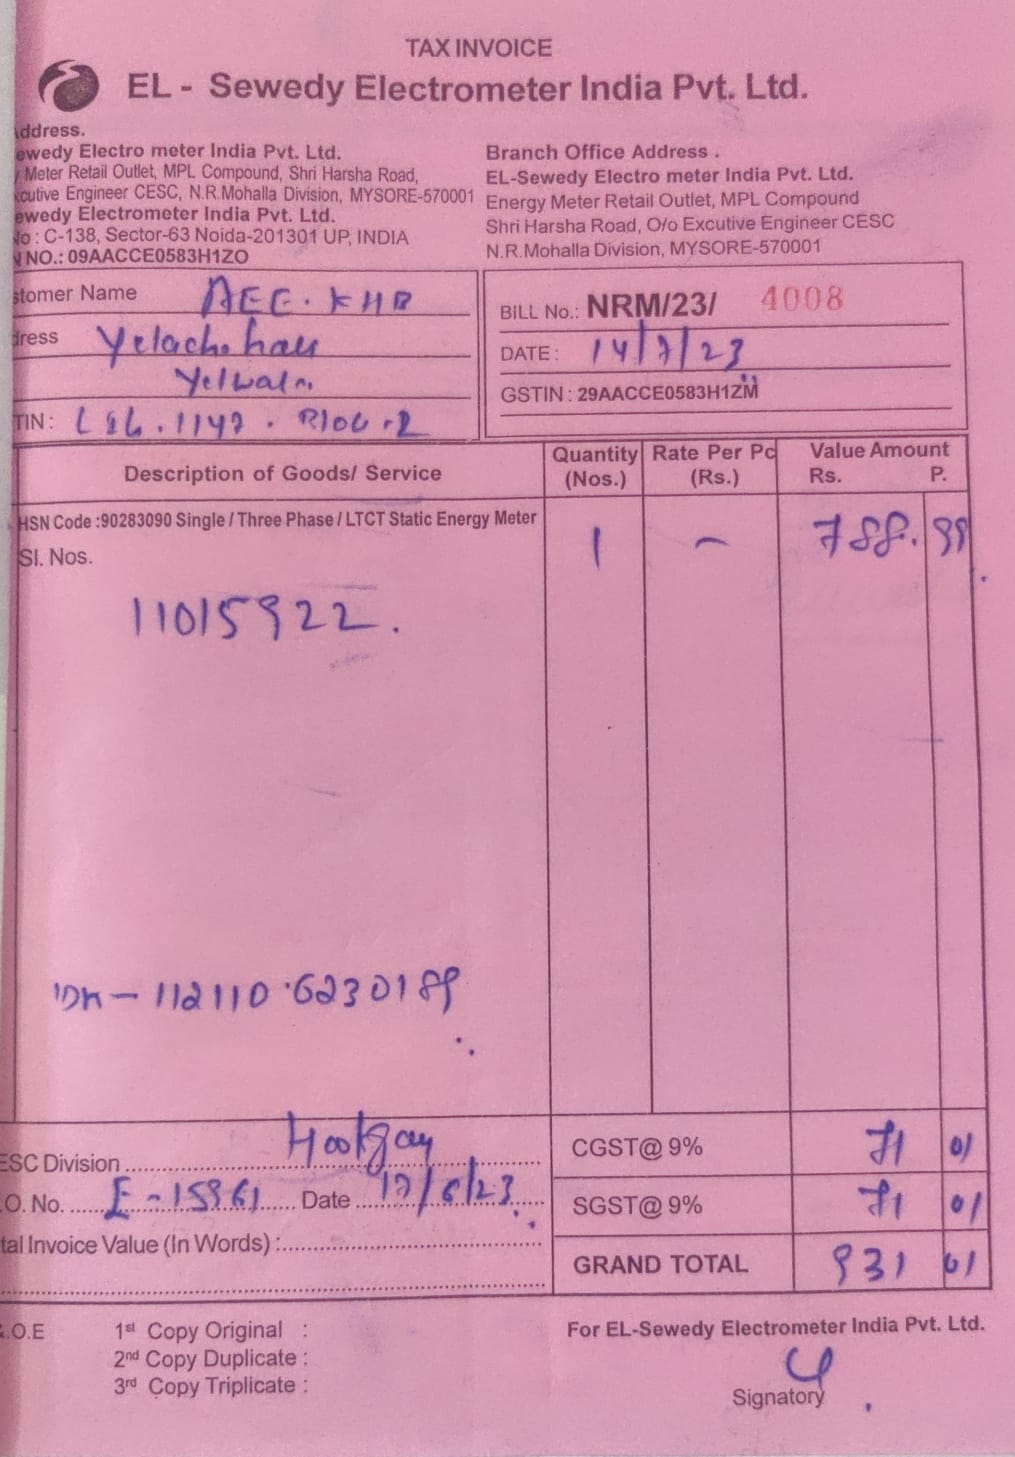 TAX INVOICE
EL - Sewedy Electrometer India Pvt. Ltd.
ddress.
ewedy Electro meter India Pvt. Ltd.
Meter Retail Outlet, MPL Compound, Shri Harsha Road,
cutive Engineer CESC, N.R.Mohalla Division, MYSORE-570001
ewedy Electrometer India Pvt. Ltd.
No : C-138, Sector-63 Noida-201301 UP, INDIA
NO.: 09AACCE0583H1ZO
Branch Office Address .
EL-Sewedy Electro meter India Pvt. Ltd.
Energy Meter Retail Outlet, MPL Compound
Shri Harsha Road, O/o Excutive Engineer CESC
N.R.Mohalla Division, MYSORE-570001
stomer Name AEE. KHB
ress
TIN :
BILL No.: NRM/23/ 4008
DATE : 14/7/23
GSTIN : 29AACCE0583H1ZM
Description of Goods/ Service Quantity (Nos.) Rate Per Pc (Rs.) Value Amount Rs. P.
HSN Code :90283090 Single / Three Phase / LTCT Static Energy Meter 1 - 788. 99
Sl. Nos.
11015922.
- 112110 6230189
ESC Division
CGST@ 9% 71 01
.O. No. E-15961 Date
SGST@ 9% 71 01
tal Invoice Value (In Words) :
GRAND TOTAL 931 01
.O.E
1st Copy Original :
2nd Copy Duplicate :
3rd Copy Triplicate :
For EL-Sewedy Electrometer India Pvt. Ltd.
Signatory